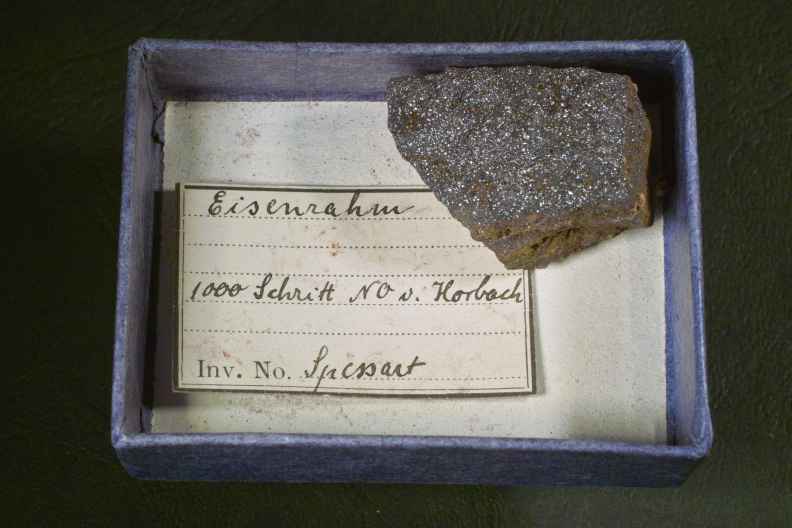 Eisenrahm
1000 Schritt NO v. Horbach
Inv. No. Spessart